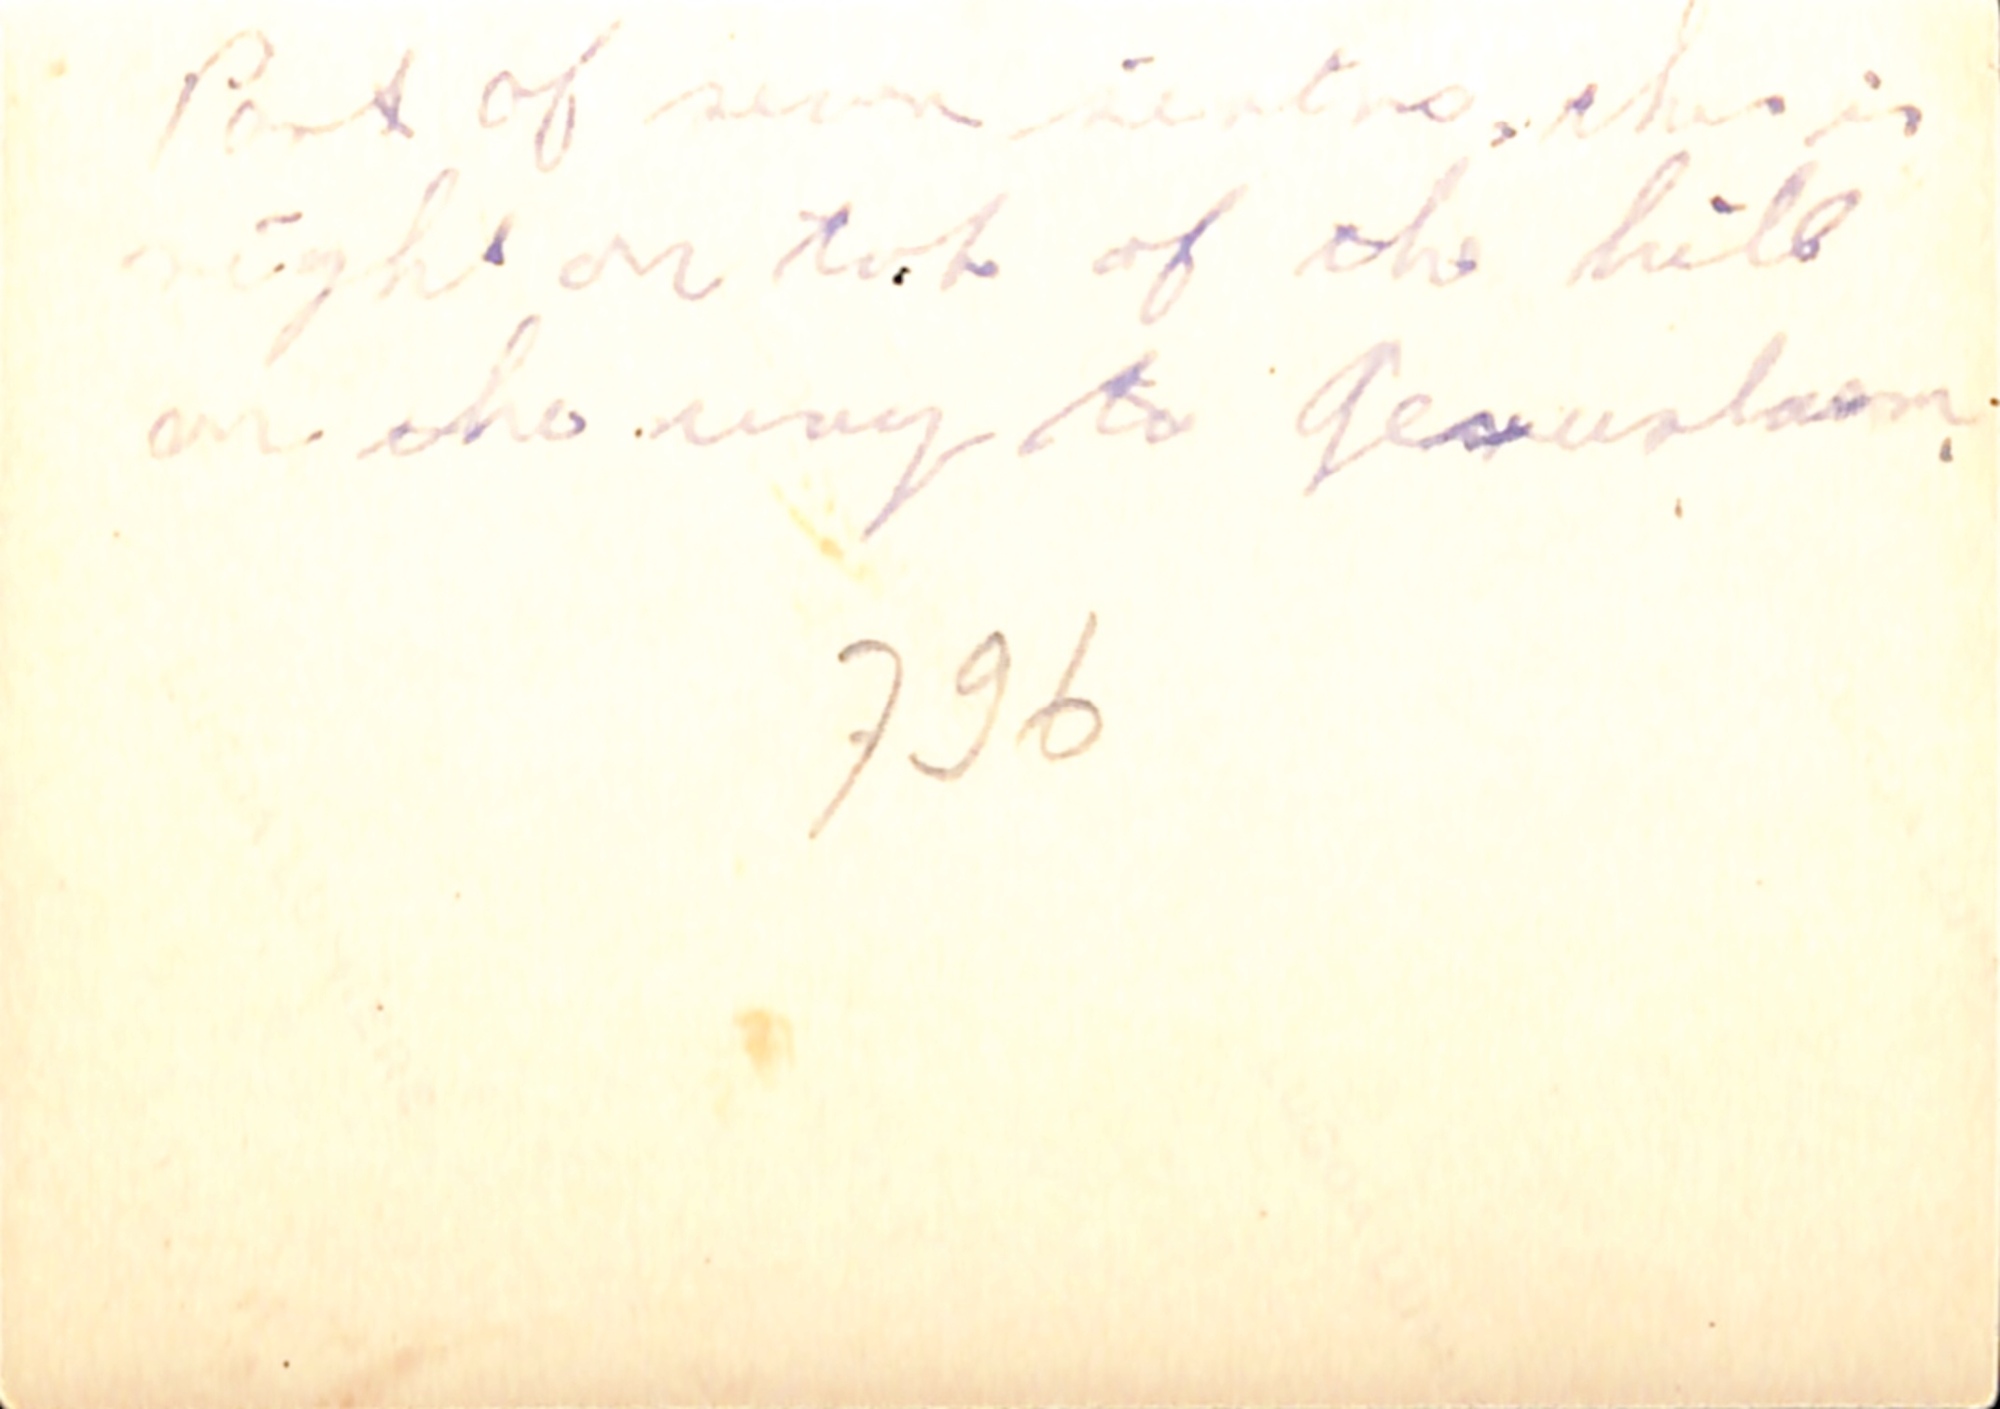 Part of seven sisters, this is
right on top of the hill
on the way to Jeruslaem.
796